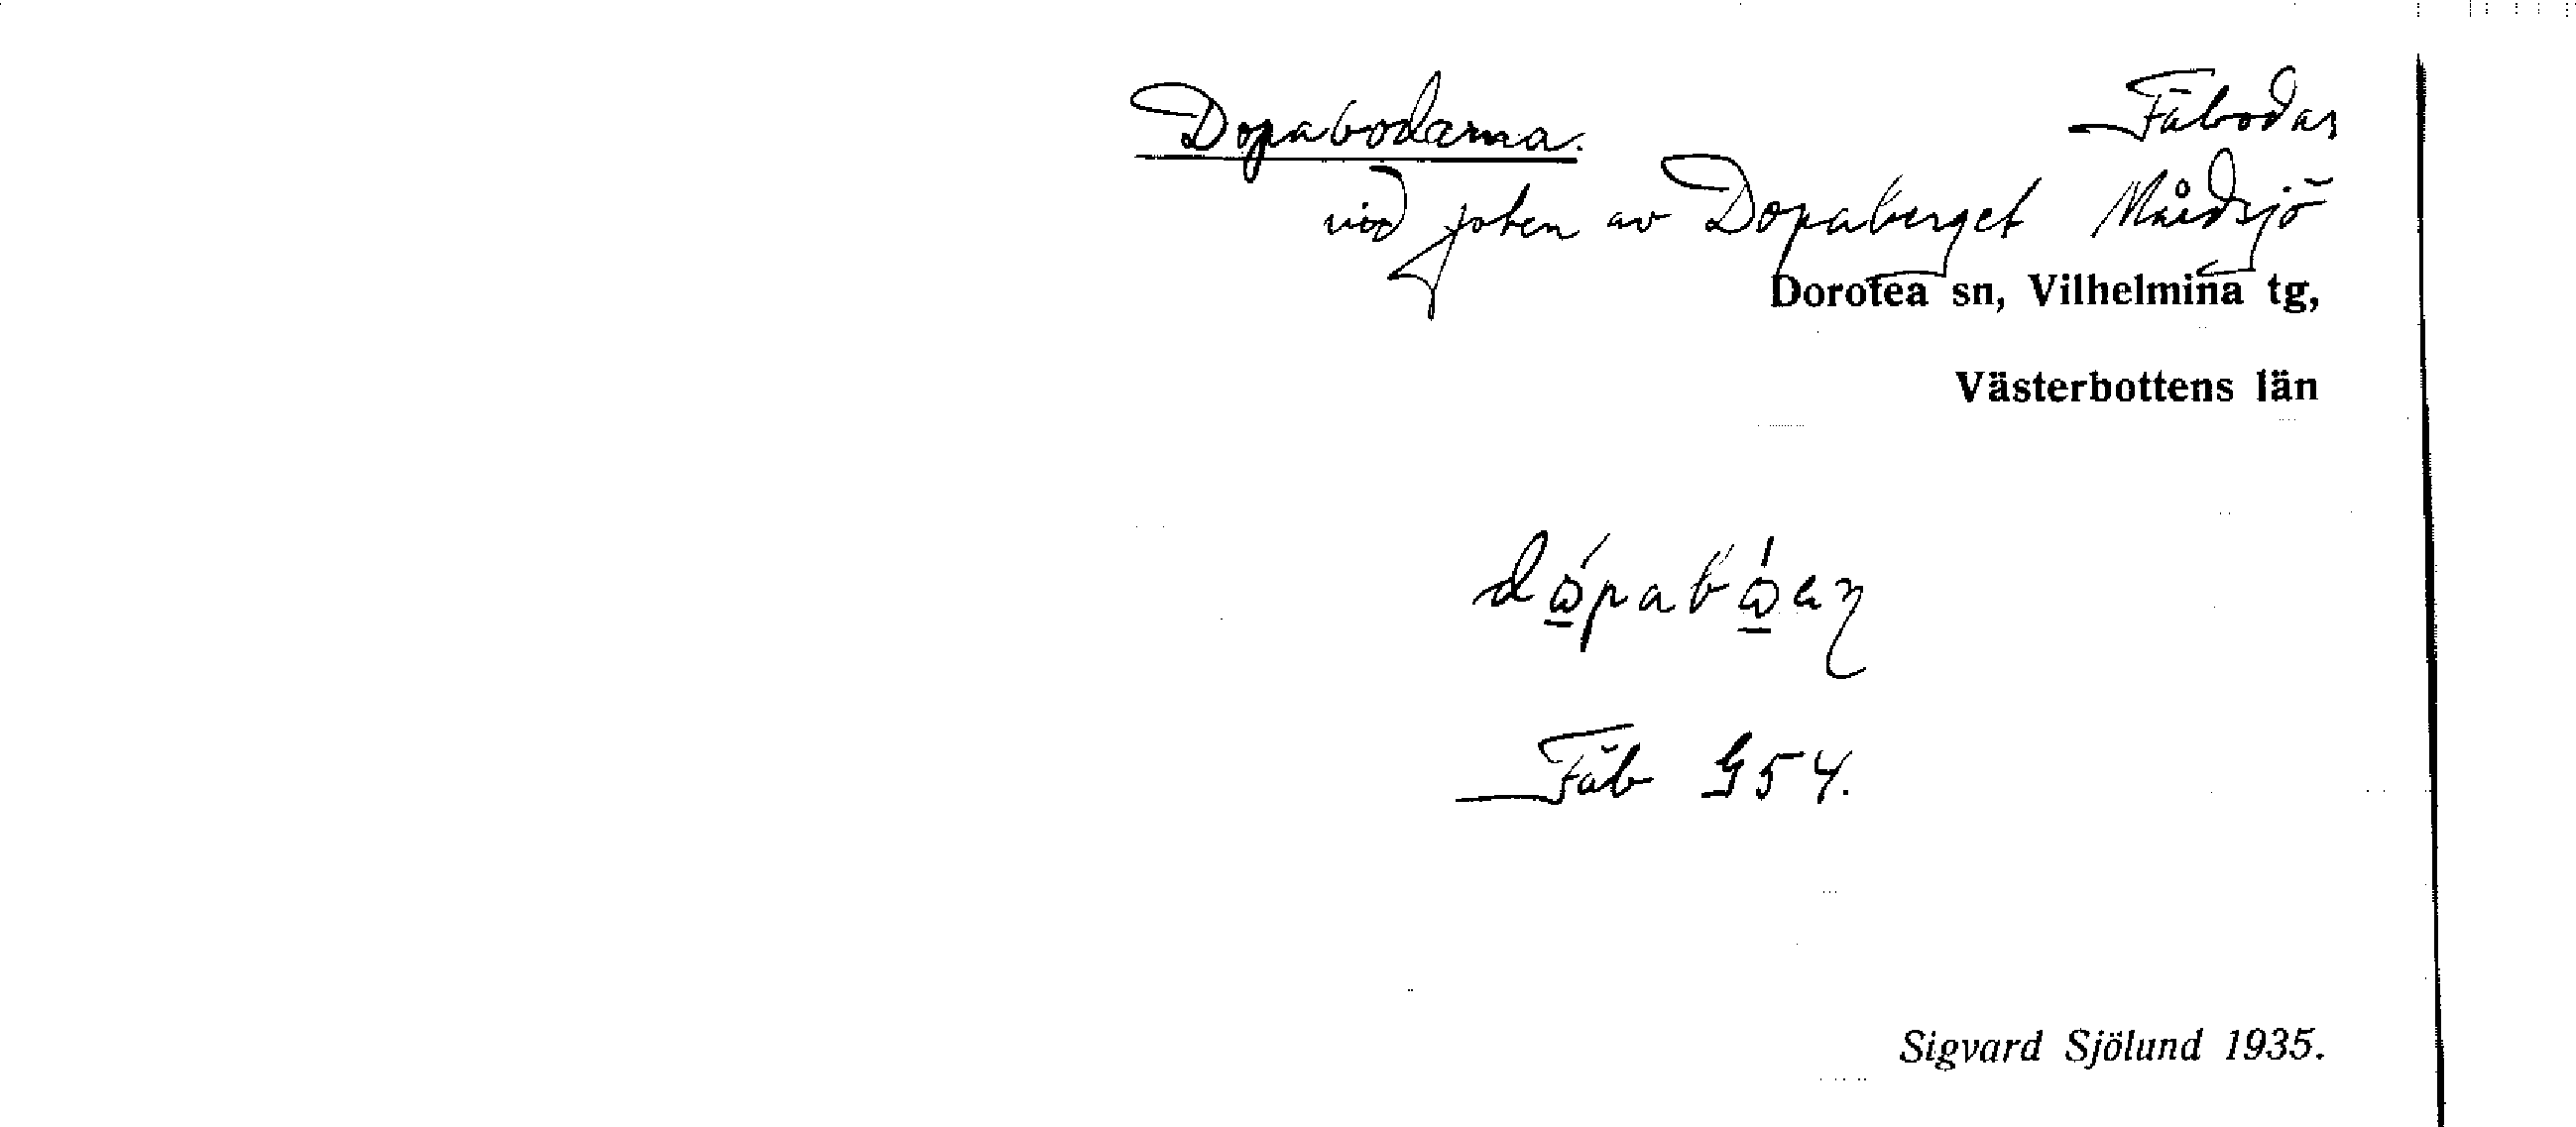 Dopabodarna. Fäbodar
vid foten av Dopaberget Mårdsjö
Dorotea sn, Vilhelmina tg,
Västerbottens län
Fäb G54.
Sigvard Sjölund 1935.